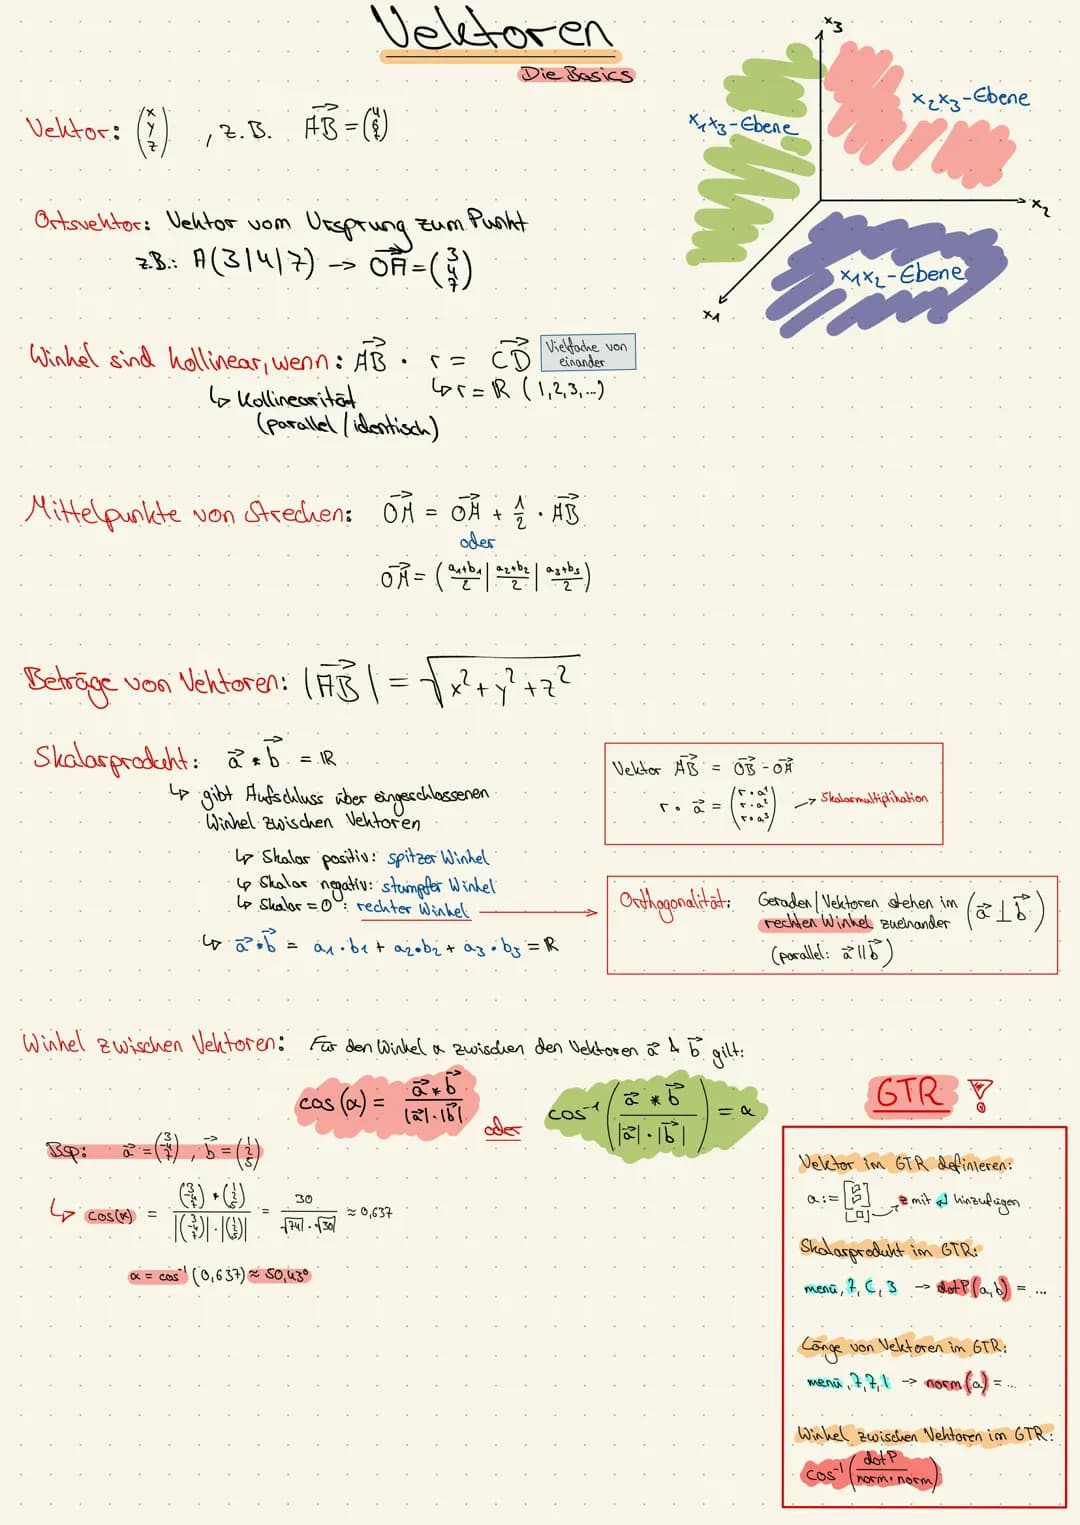 Vektoren
Die Basics
x₃
x₂x₃-Ebene
x₁x₃-Ebene
x₂
x₁x₂-Ebene
x₁
Vektor: (x y z), z.B. AB→ = (4 6 7)
Ortsvektor: Vektor vom Ursprung zum Punkt
z.B.: A(3|4|7) → OA→ = (3 4 7)
Winkel sind kollinear, wenn: AB→ · r = CD→
Vielfache von
einander
↳ r = ℝ (1,2,3,...)
↳ Kollinearität
(parallel / identisch)
Mittelpunkte von Strecken: OM→ = OA→ + 1/2 · AB→
oder
OM→ = (a₁+b₁/2 | a₂+b₂/2 | a₃+b₃/2)
Beträge von Vektoren: |AB→| = √x²+y²+z²
Skalarprodukt: a→ * b→ = ℝ
↳ gibt Aufschluss über eingeschlossenen
Winkel zwischen Vektoren
↳ Skalar positiv: spitzer Winkel
↳ Skalar negativ: stumpfer Winkel
↳ Skalar = 0: rechter Winkel
↳ a→ * b→ = a₁·b₁ + a₂·b₂ + a₃·b₃ = ℝ
Vektor AB→ = OB→ - OA→
r · a→ = (r·a¹ r·a² r·a³) → Skalarmultiplikation
Orthogonalität: Geraden/Vektoren stehen im
rechten Winkel zueinander (a→ ⊥ b→)
(parallel: a→ || b→)
Winkel zwischen Vektoren: Für den Winkel α zwischen den Vektoren a→ & b→ gilt:
cos(α) = a→ * b→ / |a→|·|b→| oder cos⁻¹(a→ * b→ / |a→|·|b→|) = α
Bsp: a→ = (3 -4 7), b→ = (1 2 5)
↳ cos(α) = (3 -4 7) * (1 2 5) / |(3 -4 7)|·|(1 2 5)| = 30 / √74·√30 ≈ 0,637
α = cos⁻¹(0,637) ≈ 50,43°
GTR !
Vektor im GTR definieren:
a:= mit ↵ hinzufügen
Skalarprodukt im GTR:
menü, 7, C, 3 → dotP(a,b) = ...
Länge von Vektoren im GTR:
menü, 7, 7, 1 → norm(a) = ...
Winkel zwischen Vektoren im GTR:
cos⁻¹(dotP / norm·norm)